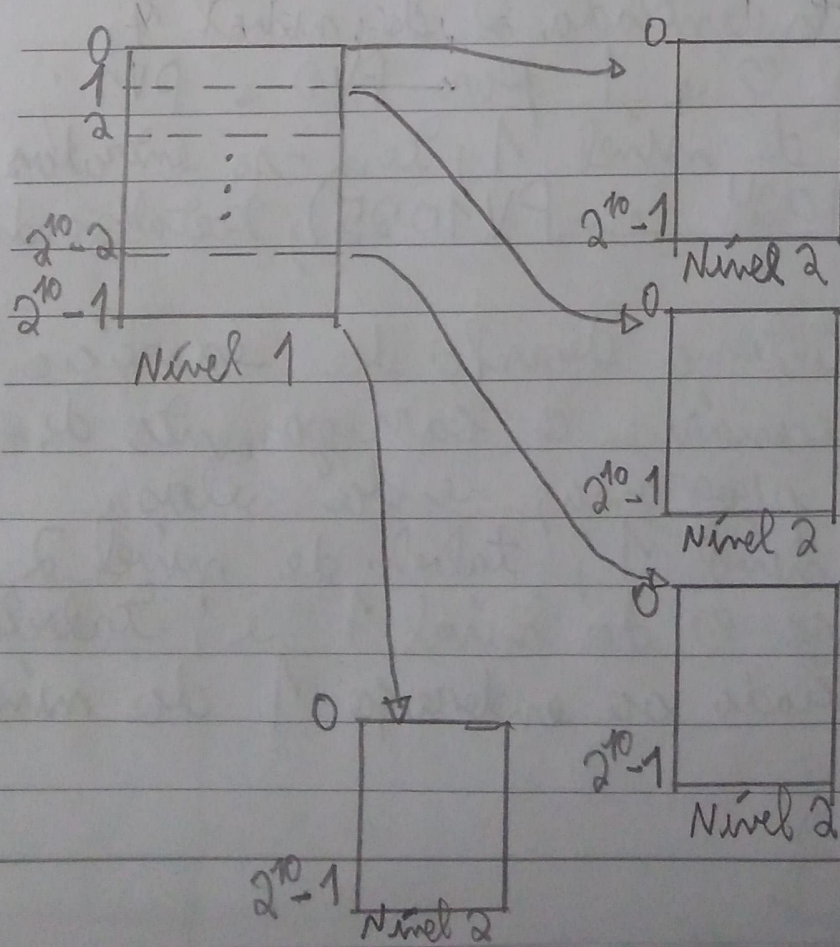 0
1
2
2¹⁰-2
2¹⁰-1
Nível 1
0
2¹⁰-1
Nível 2
0
2¹⁰-1
Nível 2
0
2¹⁰-1
Nível 2
0
2¹⁰-1
Nível 2